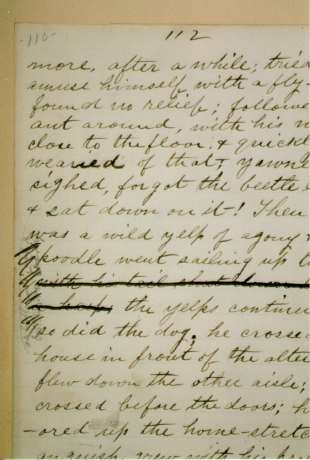 112
more, after a while; tried
amuse himself with a fly
found no relief; followe
ant around, with his n
close to the floor, & quickl
wearied of that; yawn
sighed, forgot the beetle
& sat down on it! Then
was a wild yelp of agony &
poodle went sailing up t
with his tail shut down
the yelps continue
so did the dog; he crosse
house in front of the alta
flew down the other aisle;
crossed before the doors; h
-ored up the home-stretc
anguish, grew with his